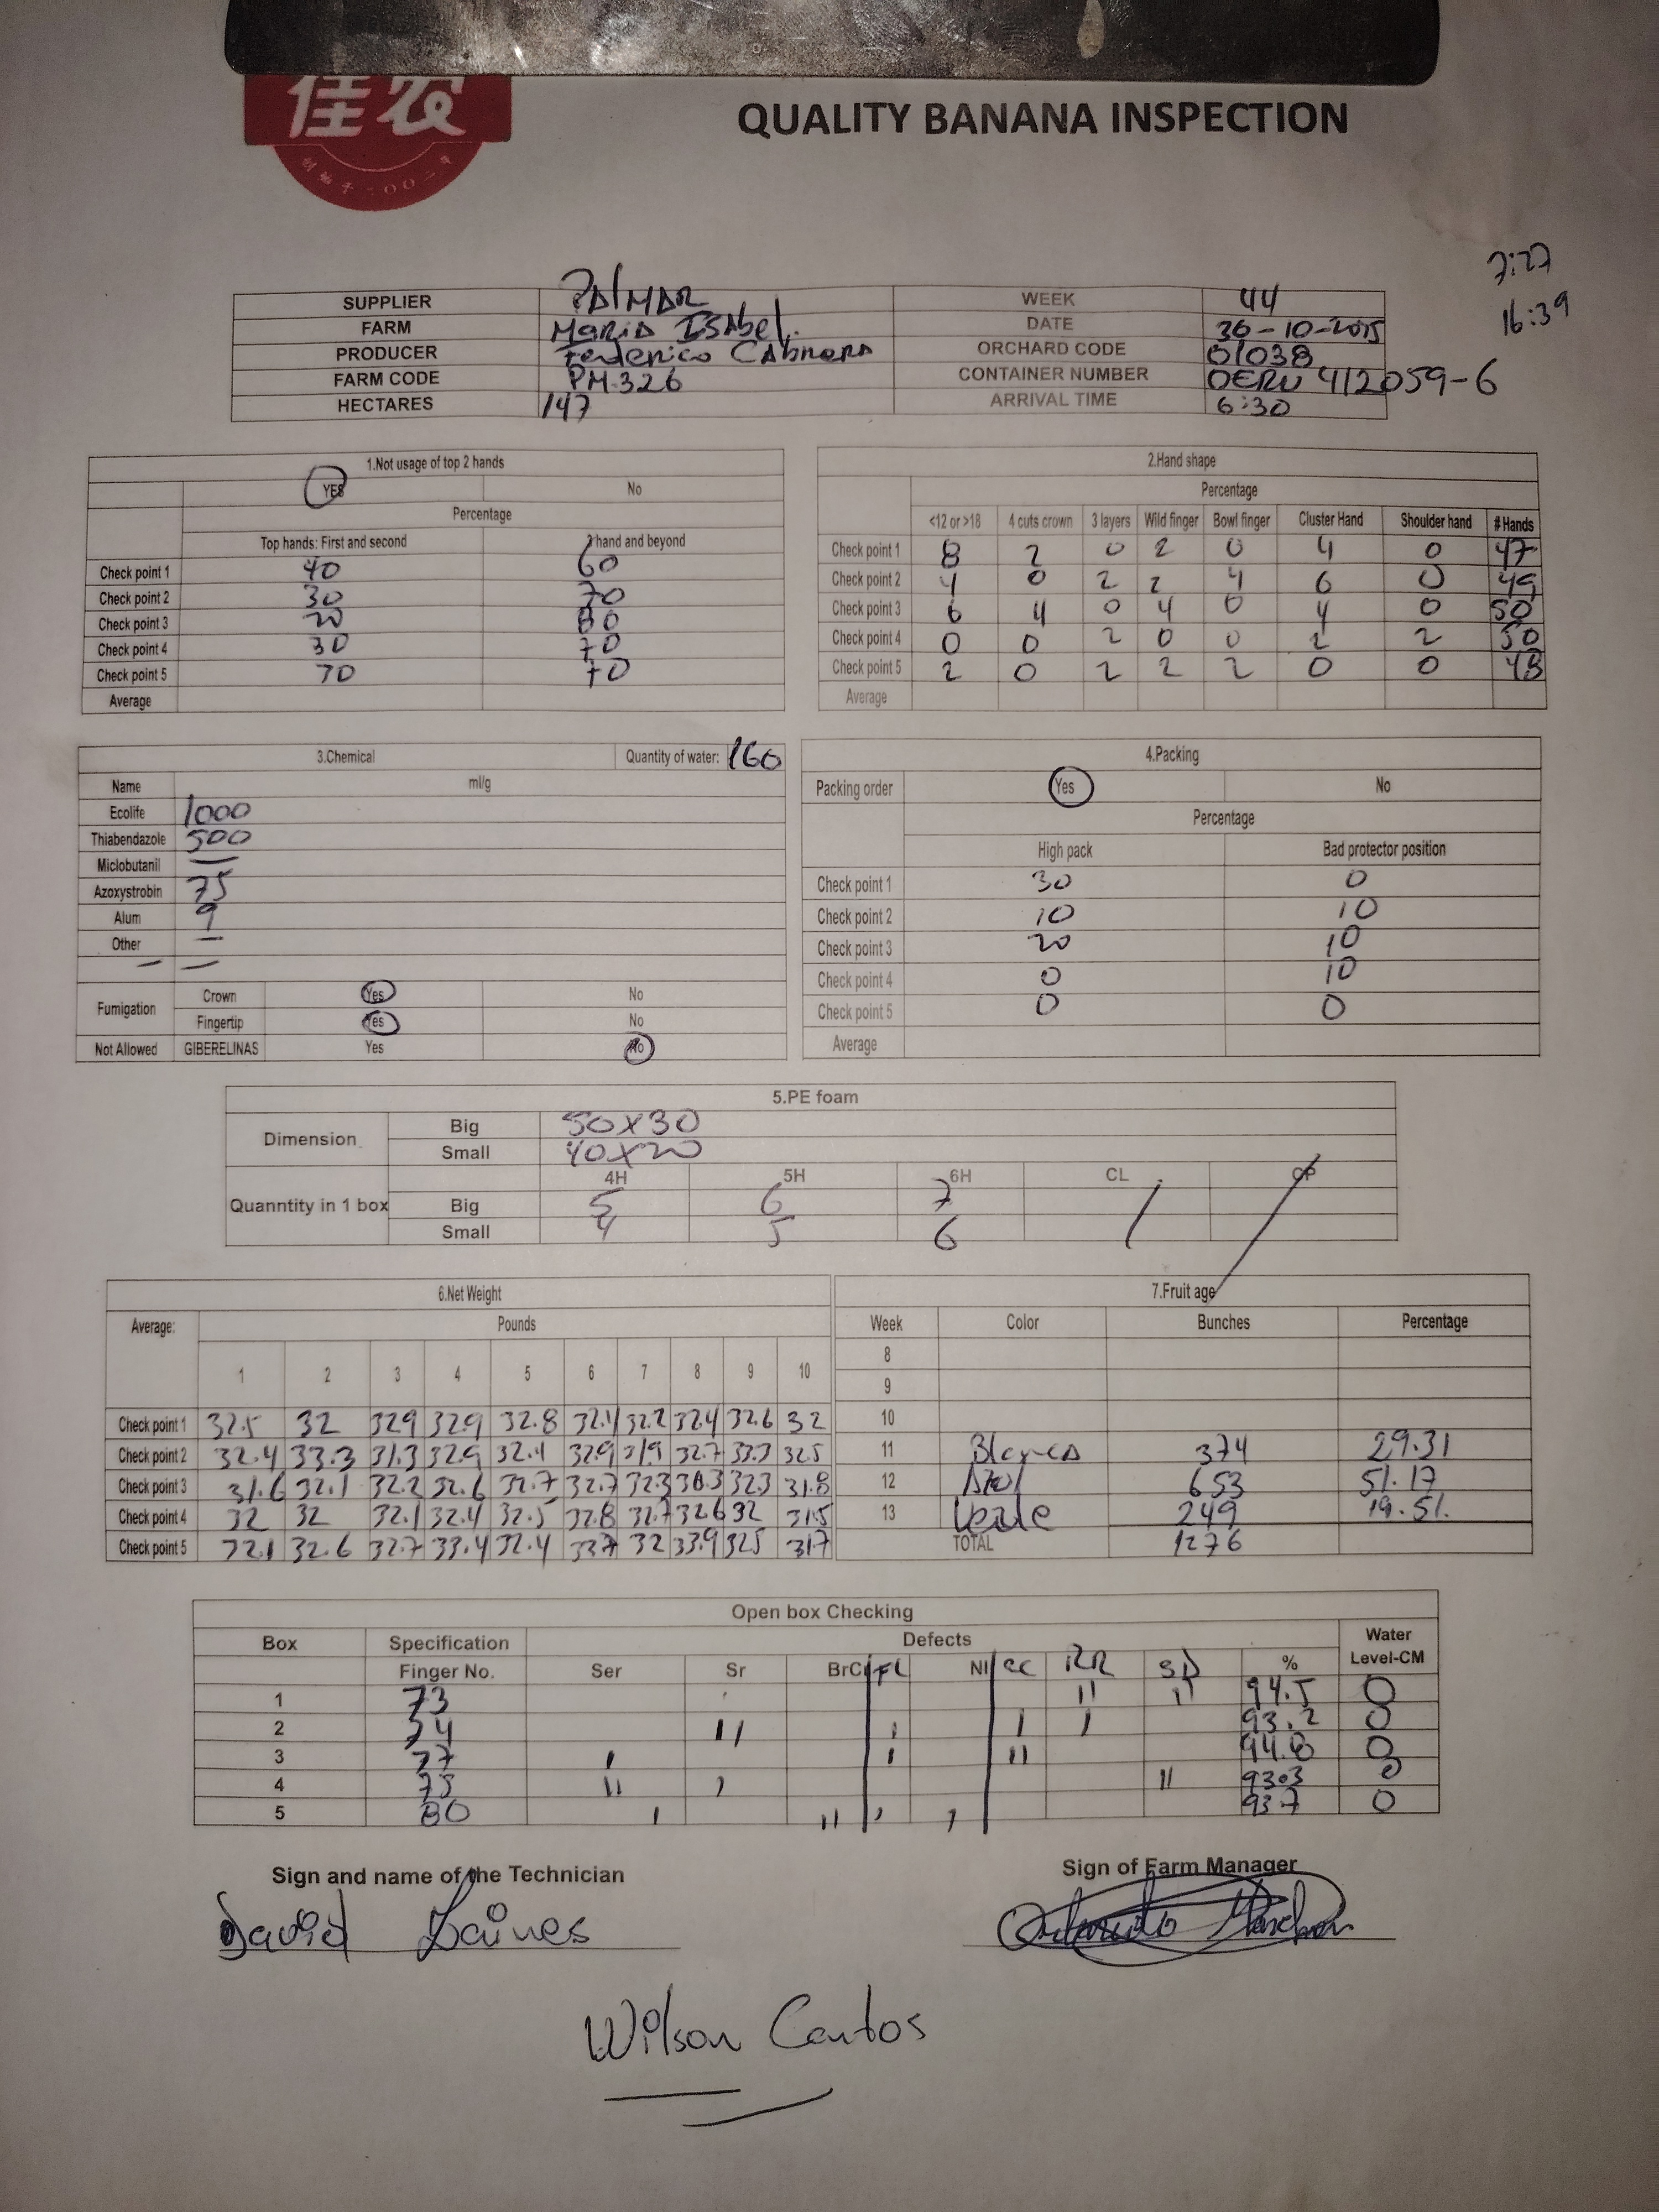 佳农
QUALITY BANANA INSPECTION
7:27
16:39
SUPPLIER PAlMAR WEEK 44
FARM MARIA ISAbel. DATE 30-10-2015
PRODUCER Federico CAbrera ORCHARD CODE 01038
FARM CODE PM-326 CONTAINER NUMBER OERU 412059-6
HECTARES 147 ARRIVAL TIME 6:30
1.Not usage of top 2 hands
YES No
Percentage
Top hands: First and second hand and beyond
Check point 1 40 60
Check point 2 30 70
Check point 3 20 80
Check point 4 30 70
Check point 5 70 70
Average
2.Hand shape
Percentage
<12 or >18 4 cuts crown 3 layers Wild finger Bowl finger Cluster Hand Shoulder hand # Hands
Check point 1 8 2 0 2 0 4 0 47
Check point 2 4 0 2 2 4 6 0 49
Check point 3 6 4 0 4 0 4 0 50
Check point 4 0 0 2 0 0 2 2 50
Check point 5 2 0 2 2 2 0 0 48
Average
3.Chemical Quantity of water: 160
Name ml/g
Ecolife 1000
Thiabendazole 500
Miclobutanil —
Azoxystrobin 75
Alum 9
Other —
— —
Fumigation Crown Yes No
Fingertip Yes No
Not Allowed GIBERELINAS Yes No
4.Packing
Packing order Yes No
Percentage
High pack Bad protector position
Check point 1 30 0
Check point 2 10 10
Check point 3 20 10
Check point 4 0 10
Check point 5 0 0
Average
5.PE foam
Dimension Big 50x30
Small 40x20
4H 5H 6H CL CP
Quanntity in 1 box Big 5 6 7
Small 4 5 6
6.Net Weight
Average: Pounds
1 2 3 4 5 6 7 8 9 10
Check point 1 32.5 32 329 32.9 32.8 32.4 32.2 32.4 32.6 32
Check point 2 32.4 33.3 31.3 32.9 32.4 32.9 31.9 32.7 33.3 32.5
Check point 3 31.6 32.1 32.2 32.6 32.7 32.7 32.3 30.3 32.3 31.8
Check point 4 32 32 32.1 32.4 32.5 32.8 32.7 32.6 32 31.5
Check point 5 32.1 32.6 32.7 33.4 32.4 33.7 32 33.9 325 317
7.Fruit age
Week Color Bunches Percentage
8
9
10
11 Blanca 374 29.31
12 Azul 653 51.17
13 Verde 249 19.51.
TOTAL 1276
Open box Checking
Box Specification Defects Water
Finger No. Ser Sr BrC FL NI CC RR SD % Level-CM
1 73 11 11 94.5 0
2 74 11 1 1 1 93.2 0
3 77 1 1 11 94.8 0
4 75 11 1 11 93.3 0
5 80 1 11 1 1 93.7 0
Sign and name of the Technician Sign of Farm Manager
David Zaines
Wilson Cantos